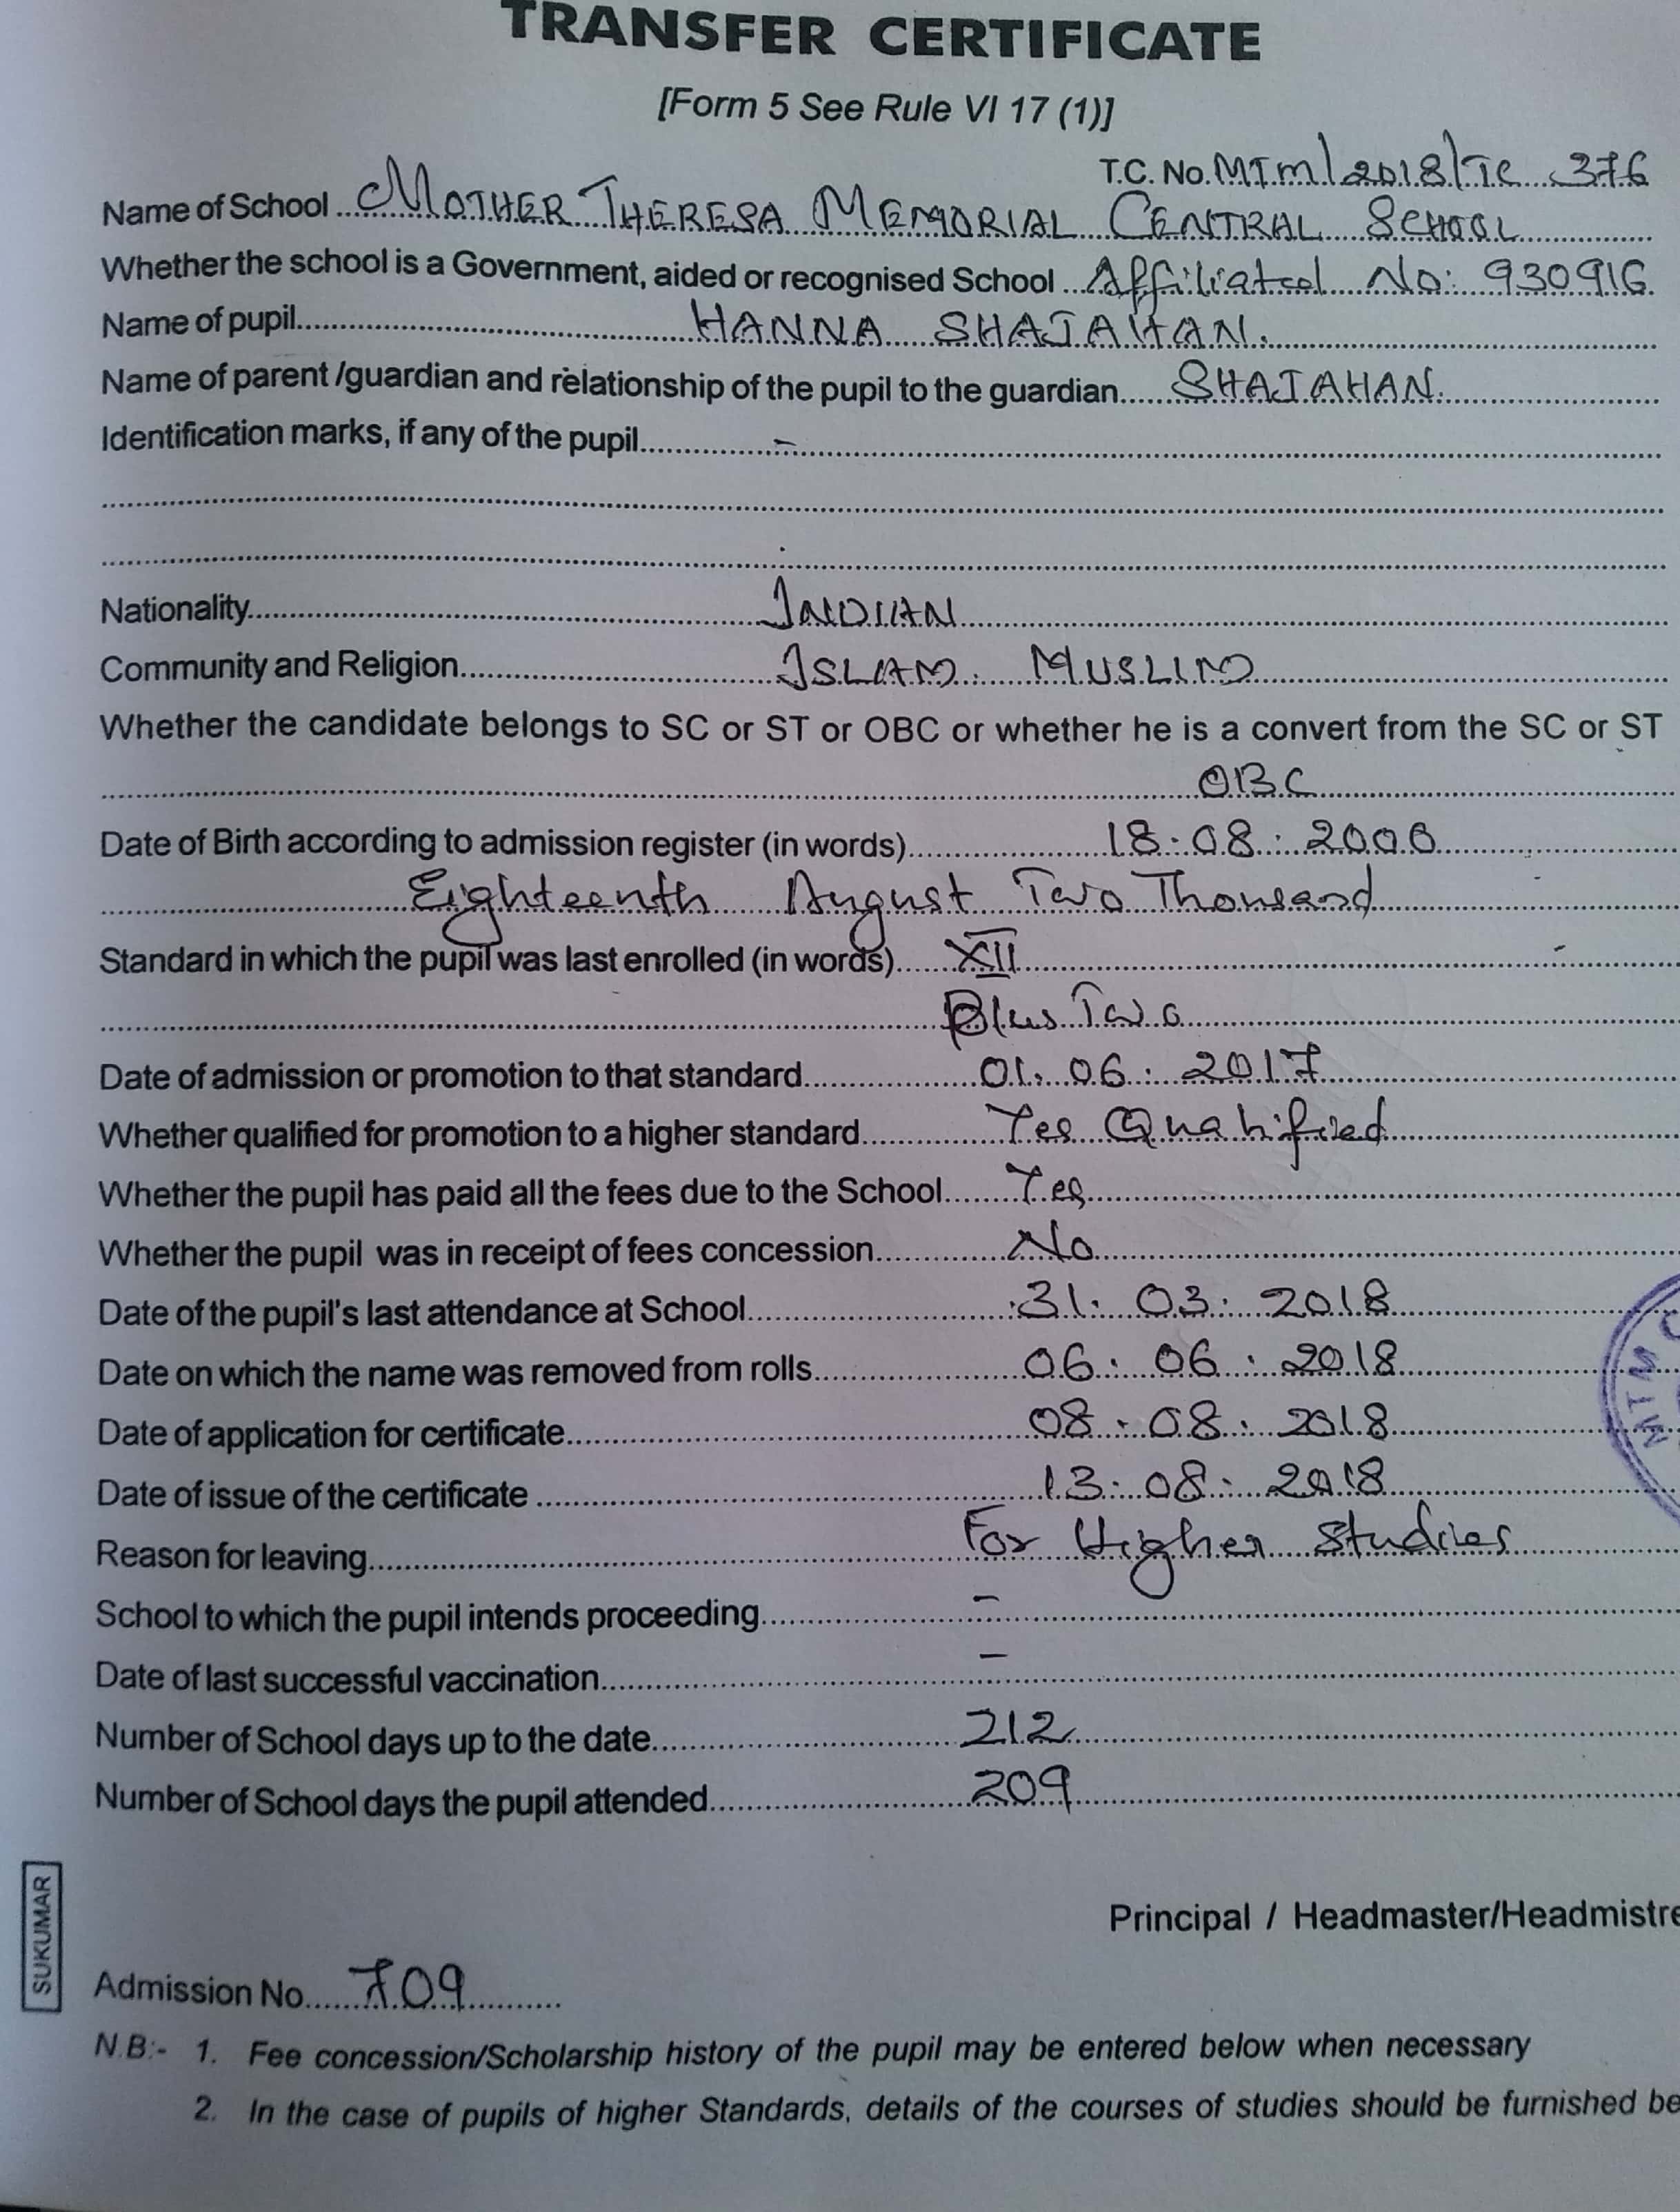 TRANSFER CERTIFICATE
[Form 5 See Rule VI 17 (1)]
T.C. No. MTM/2018/TC 376
Name of School MOTHER THERESA MEMORIAL CENTRAL SCHOOL
Whether the school is a Government, aided or recognised School Affiliated No: 930916
Name of pupil HANNA SHAJAHAN.
Name of parent /guardian and relationship of the pupil to the guardian SHAJAHAN.
Identification marks, if any of the pupil –
Nationality INDIAN
Community and Religion ISLAM. MUSLIM
Whether the candidate belongs to SC or ST or OBC or whether he is a convert from the SC or ST
OBC
Date of Birth according to admission register (in words) 18:08:2000
Eighteenth August Two Thousand
Standard in which the pupil was last enrolled (in words) XII
Plus Two
Date of admission or promotion to that standard 01.06.2017
Whether qualified for promotion to a higher standard Yes Qualified
Whether the pupil has paid all the fees due to the School Yes
Whether the pupil was in receipt of fees concession No
Date of the pupil's last attendance at School 31.03.2018
Date on which the name was removed from rolls 06:06:2018
Date of application for certificate 08:08:2018
Date of issue of the certificate 13:08:2018
Reason for leaving For Higher Studies
School to which the pupil intends proceeding –
Date of last successful vaccination –
Number of School days up to the date 212
Number of School days the pupil attended 209
Principal / Headmaster/Headmistre
SUKUMAR
Admission No 709
N.B:- 1. Fee concession/Scholarship history of the pupil may be entered below when necessary
2. In the case of pupils of higher Standards, details of the courses of studies should be furnished be
MTM C